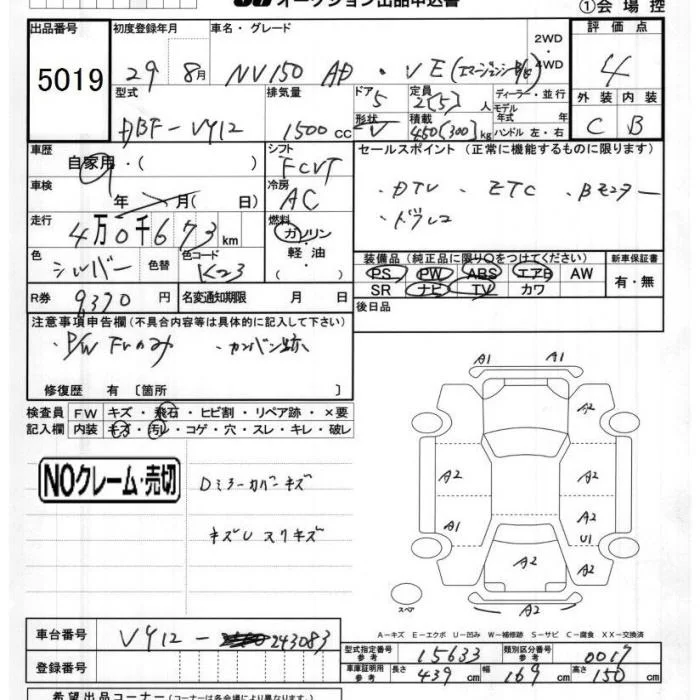 オークション出品申込書
①会場控
出品番号 5019
初度登録年月 29 8月
車名・グレード NV150 AD・VE(エマージェンシーB/P)
2WD・4WD
評価点 4
外装 C 内装 B
型式 DBF-VY12
排気量 1500cc
ドア 5 形状 V
定員 2[5]人 積載 450[300]kg
ディーラー・並行
モデル年式 年式
ハンドル 左・右
車歴 自家用・( )
シフト FCVT
セールスポイント(正常に機能するものに限ります)
・DTV ・ETC ・Bモニター
・ドラレコ
車検 年 月( 日)
冷房 AC
走行 4万0千673km
燃料 ガソリン・軽油・
色 シルバー 色替 色コード K23
装備品(純正品に限り○をつけてください) 新車保証書
PS PW ABS エアB AW
SR ナビ TV カワ
有・無
R券 9,370円 名変通知期限 月 日
後日品
注意事項申告欄(不具合内容等は具体的に記入して下さい)
・P/W Frのみ ・カンバン跡
修復歴 有〔箇所 〕
検査員記入欄
FW キズ・飛石・ヒビ割・リペア跡・×要
内装 キズ・汚レ・コゲ・穴・スレ・キレ・破レ
NOクレーム・売切
Dミラーカバーキズ
キズUスリキズ
A1 A1
A2
A2 A2
A1 A2
U1
A2 A2
A2
スペア
A-キズ E-エクボ U-凹み W-補修跡 S-サビ C-腐食 XX-交換済
車台番号 VY12-243083
登録番号
型式指定番号 参考 15633 類別区分番号 参考 0017
車庫証明用 参考 長さ 439cm 幅 169cm 高さ 150cm
希望出品コーナー(コーナーは各会場により異なります。)